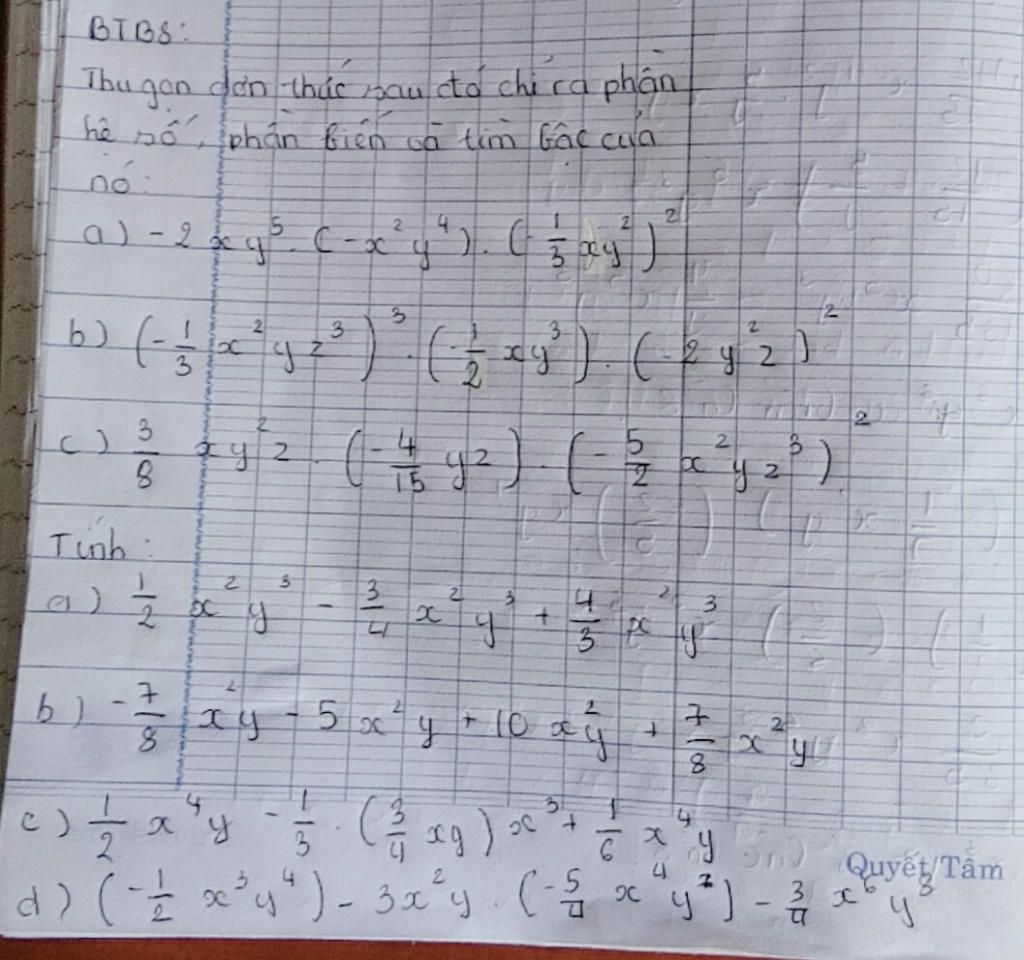 BTBS:
Thu gọn đơn thức sau đó chỉ ra phần
hệ số, phần biến và tìm bậc của
nó:
a) -2xy⁵.(-x²y⁴).(-1/3xy²)²
b) (-1/3 x²yz³)³.(-1/2 xy³).(-2y²z)²
c) 3/8 xy²z.(-4/15 yz).(-5/2 x²yz³)²
Tính:
a) 1/2 x²y³ - 3/4 x²y³ + 4/3 x²y³
b) -7/8 x²y - 5x²y + 10x²y + 7/8 x²y
c) 1/2 x⁴y - 1/3.(3/4 xy)x³ + 1/6 x⁴y
Quyết Tâm
d) (-1/2 x³y⁴) - 3x²y.(-5/4 x⁴y⁷) - 3/4 x⁶y⁸